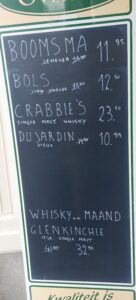 BOOMSMA 11.95
JENEVER
BOLS 12.50
JONGE JENEVER
CRABBIE'S 23.50
SINGLE MALT WHISKY
DUJARDIN 10.99
VIEUX
WHISKY v.d. MAAND
GLENKINCHIE
12 JR SINGLE MALT
32.50
Kwaliteit is